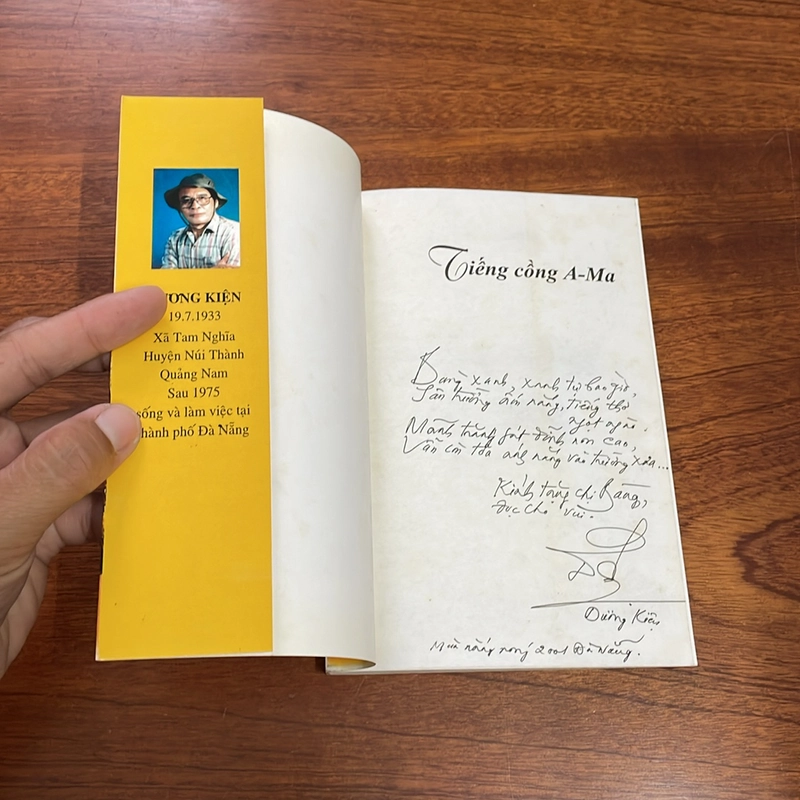 ƯƠNG KIỆN
19.7.1933
Xã Tam Nghĩa
Huyện Núi Thành
Quảng Nam
Sau 1975
sống và làm việc tại
thành phố Đà Nẵng
Tiếng cồng A-Ma
Bàng xanh, xanh tự bao giờ,
Sân trường ấm nắng, tiếng thơ
ngọt ngào.
Mảnh trăng gát đỉnh non cao,
Vẫn còn tỏa ánh nắng vào trường xưa...
Kính tặng chị Bàng,
đọc cho vui.
Dương Kiện
Mùa nắng nóng 2001 Đà Nẵng.